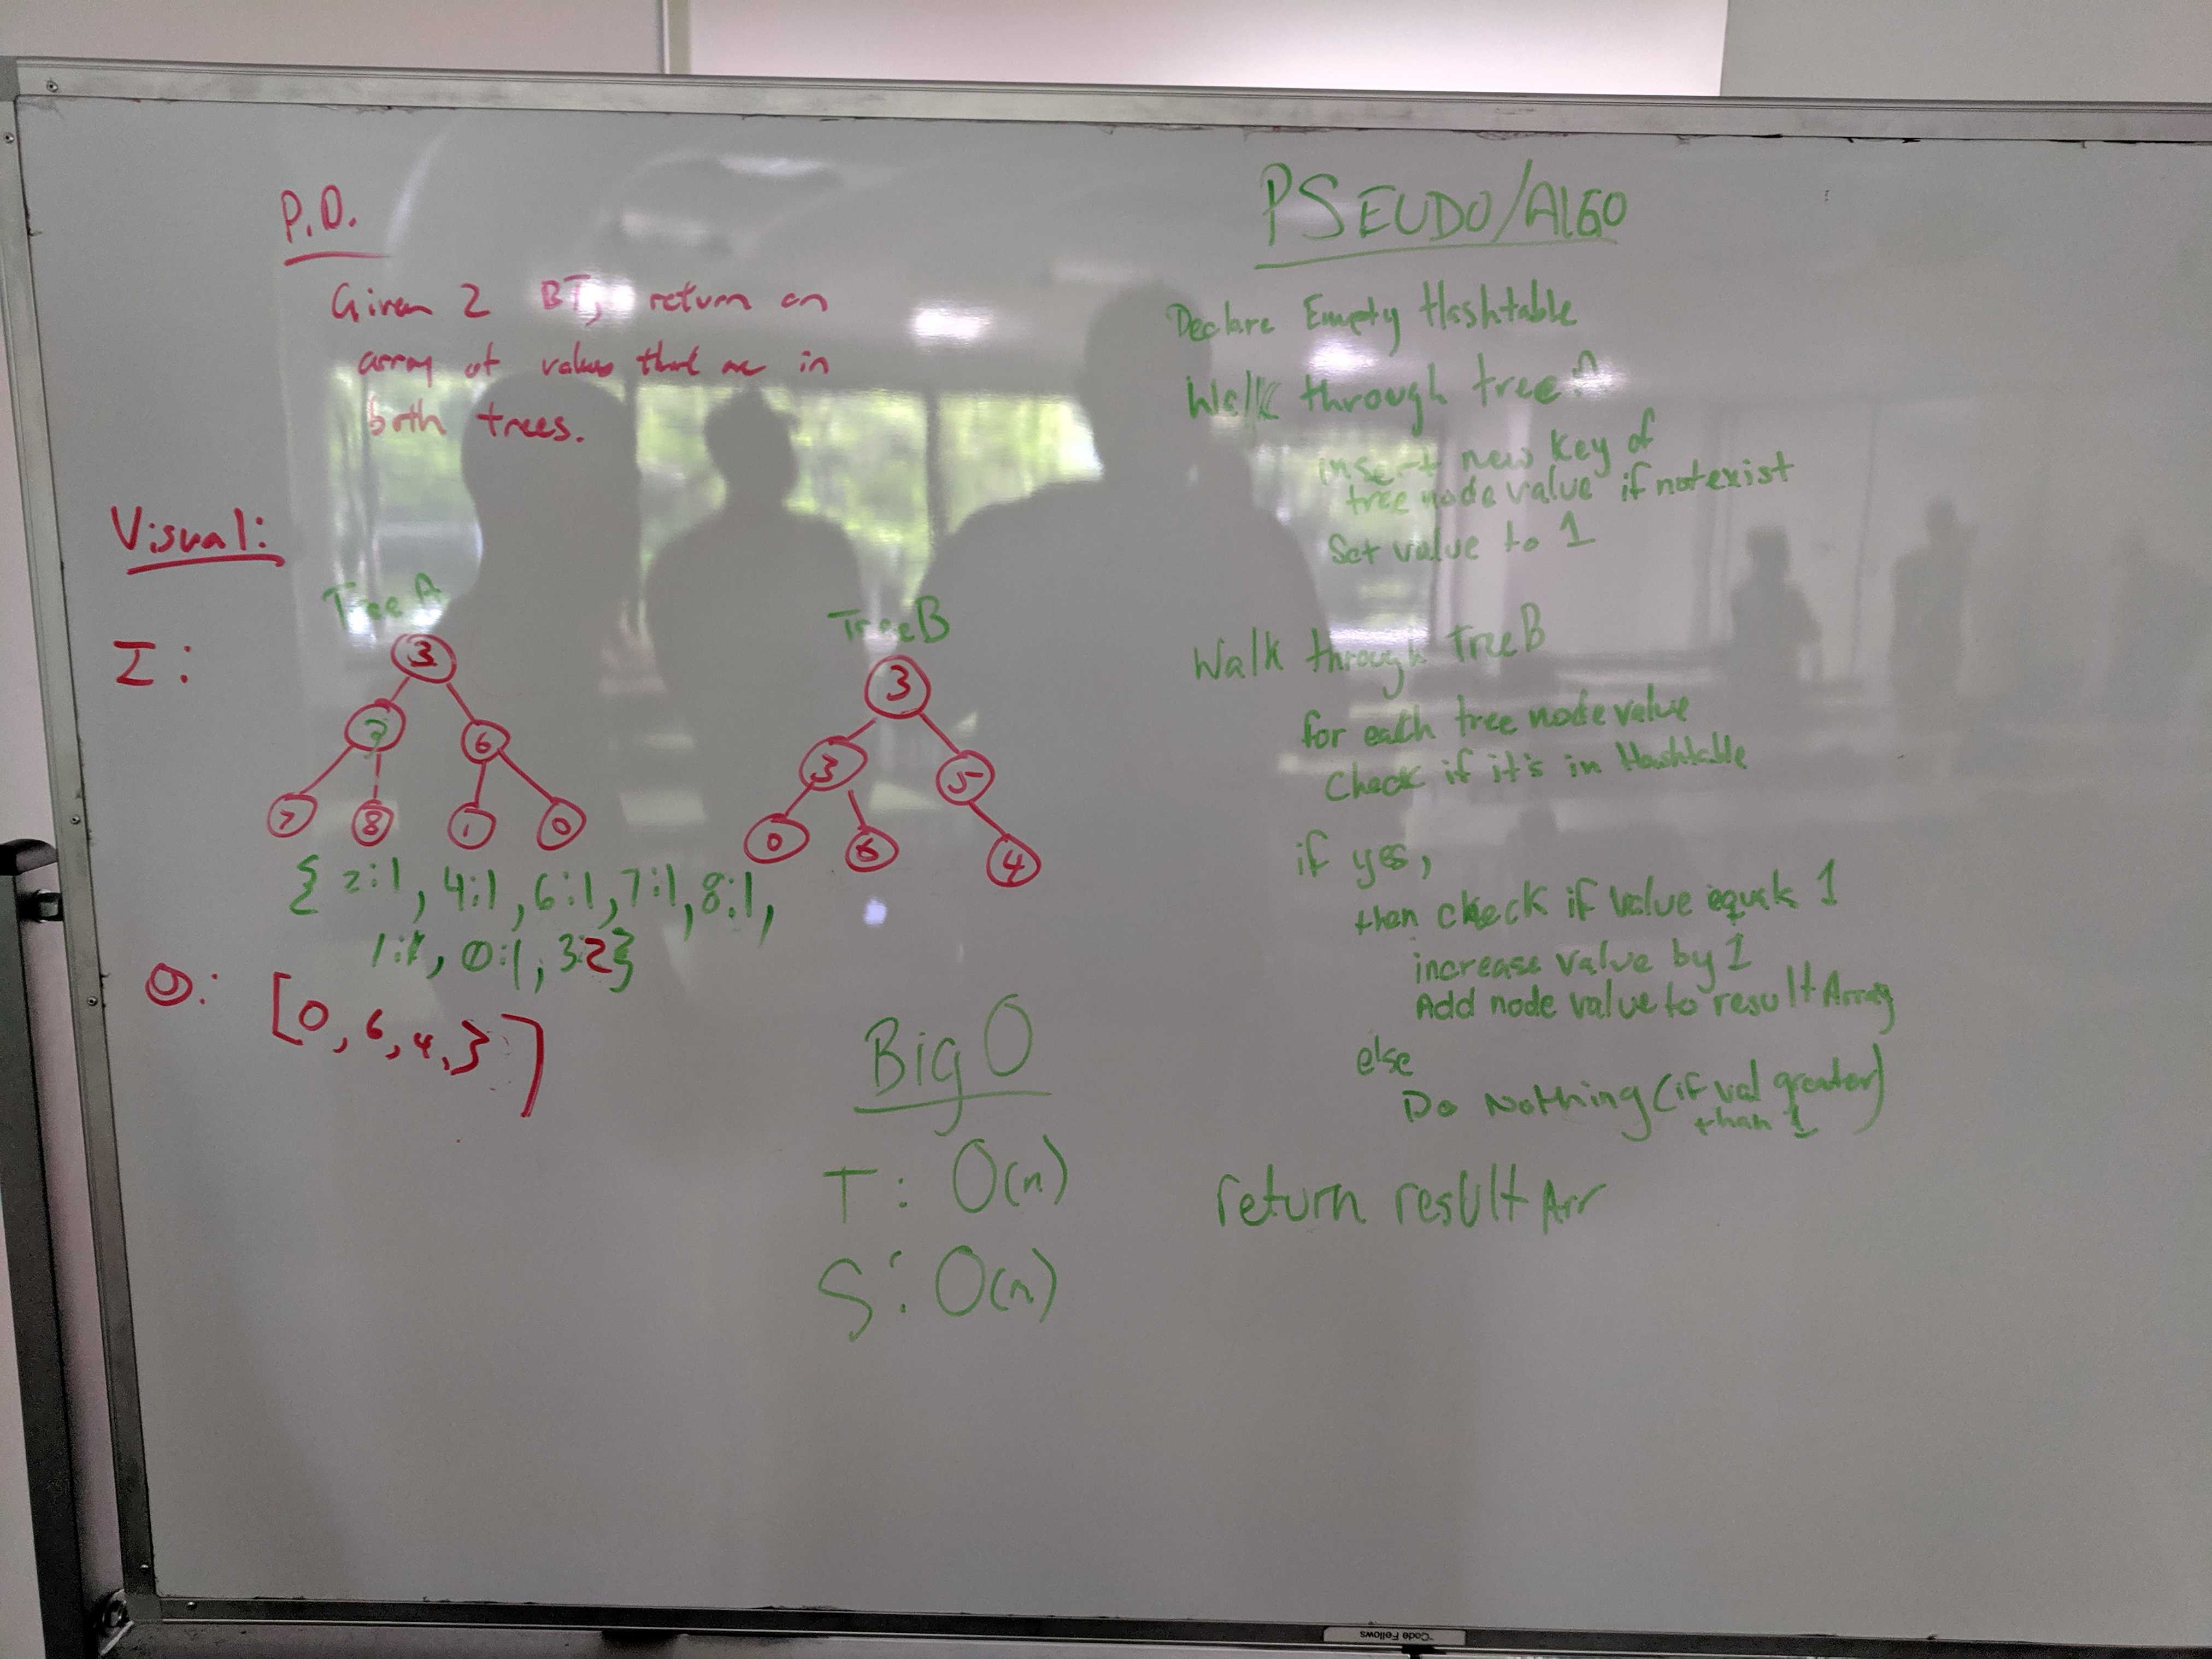 P.D.
Given 2 BT, return an
array of values that are in
both trees.
Visual:
I:
Tree A
3
2 6
7 8 1 0
Tree B
3
3 5
0 6 4
{ 2:1, 4:1, 6:1, 7:1, 8:1,
1:1, 0:1, 3:2}
O: [0, 6, 4, 3]
Big O
T: O(n)
S: O(n)
PSEUDO/ALGO
Declare Empty Hashtable
Walk through tree A
insert new key of
tree node value if not exist
Set value to 1
Walk through Tree B
for each tree node value
Check if it's in Hashtable
if yes,
then check if value equals 1
increase value by 1
Add node value to result Array
else
Do Nothing (if val greater
than 1)
return result Arr
Code Fellows